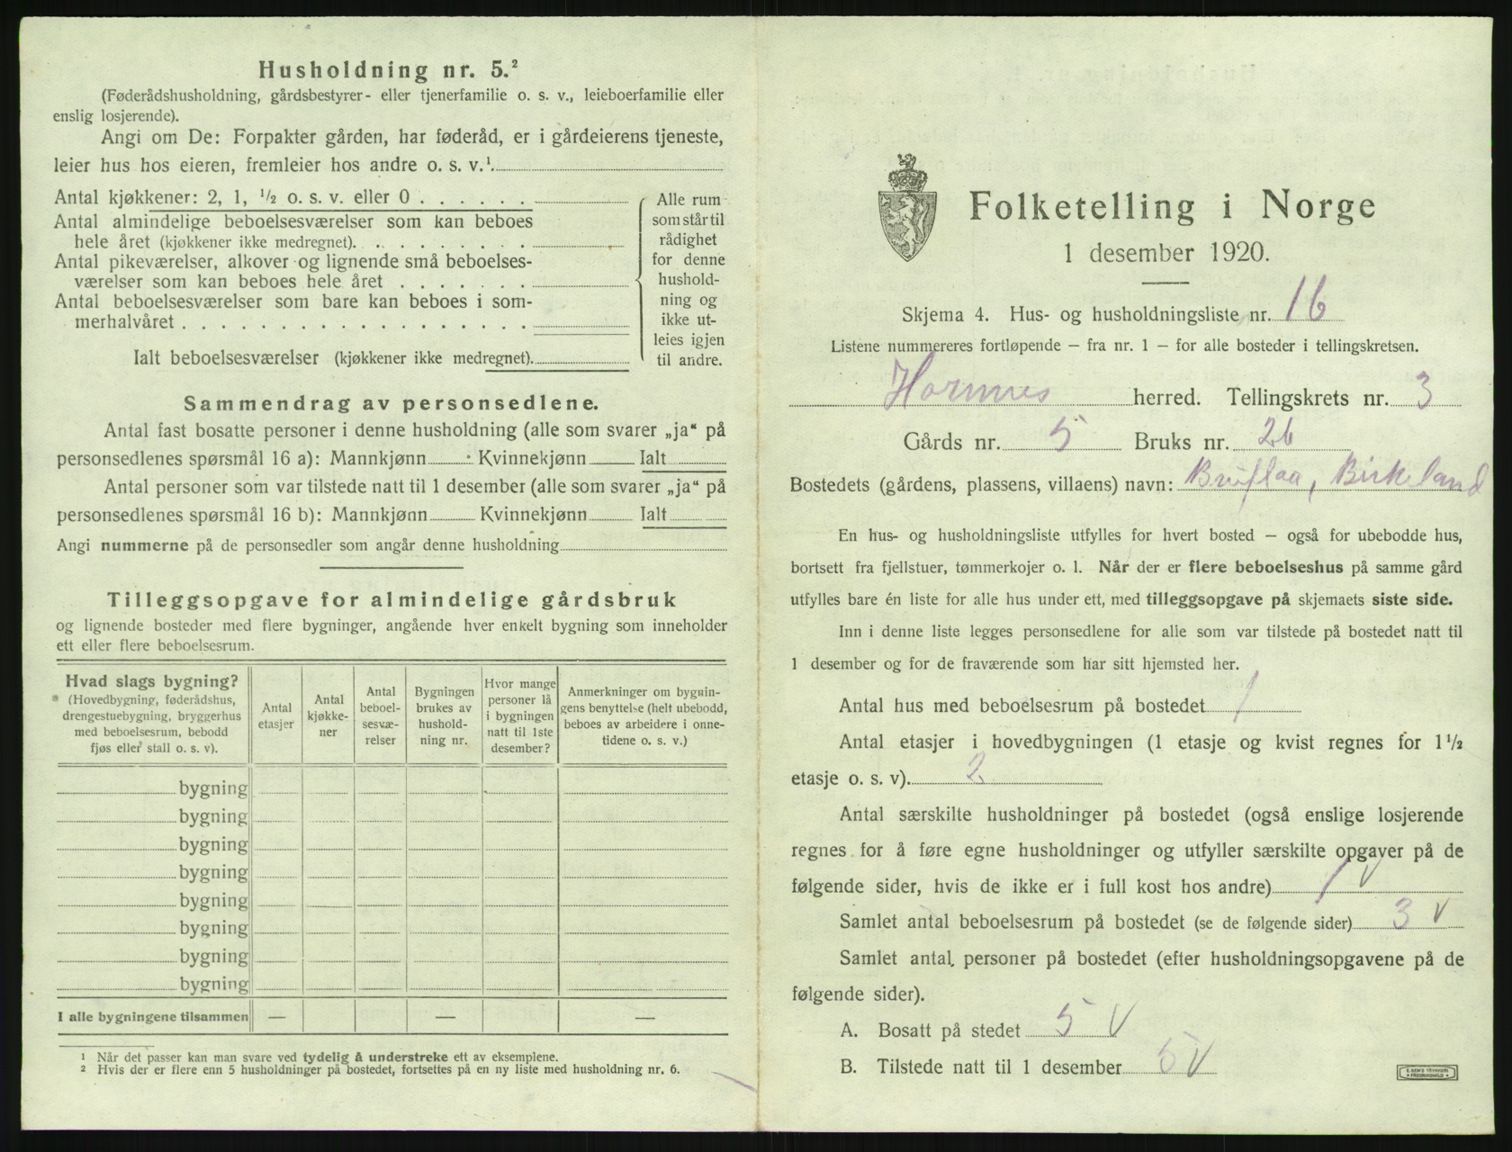 Husholdning nr. 5.²
(Føderådshusholdning, gårdsbestyrer- eller tjenerfamilie o. s. v., leieboerfamilie eller
enslig losjerende).
Angi om De: Forpakter gården, har føderåd, er i gårdeierens tjeneste,
leier hus hos eieren, fremleier hos andre o. s. v.¹
Antal kjøkkener: 2, 1, ½ o. s. v. eller 0
Antal almindelige beboelsesværelser som kan beboes
hele året (kjøkkener ikke medregnet).
Antal pikeværelser, alkover og lignende små beboelses-
værelser som kan beboes hele året
Antal beboelsesværelser som bare kan beboes i som-
merhalvåret
Ialt beboelsesværelser (kjøkkener ikke medregnet).
Alle rum
som står til
rådighet
for denne
hushold-
ning og
ikke ut-
leies igjen
til andre.
Sammendrag av personsedlene.
Antal fast bosatte personer i denne husholdning (alle som svarer „ja“ på
personsedlenes spørsmål 16 a): Mannkjønn Kvinnekjønn Ialt
Antal personer som var tilstede natt til 1 desember (alle som svarer „ja“ på
personsedlenes spørsmål 16 b): Mannkjønn Kvinnekjønn Ialt
Angi nummerne på de personsedler som angår denne husholdning
Tilleggsopgave for almindelige gårdsbruk
og lignende bosteder med flere bygninger, angående hver enkelt bygning som inneholder
ett eller flere beboelsesrum.
Hvad slags bygning?
(Hovedbygning, føderådshus,
drengestuebygning, bryggerhus
med beboelsesrum, bebodd
fjøs eller stall o. s. v).
Antal
etasjer
Antal
kjøkke-
ner
Antal
beboel-
sesvæ-
relser
Bygningen
brukes av
hushold-
ning nr.
Hvor mange
personer lå
i bygningen
natt til 1ste
desember?
Anmerkninger om bygnin-
gens benyttelse (helt ubebodd,
beboes av arbeidere i onne-
tidene o. s. v.)
bygning
bygning
bygning
bygning
bygning
bygning
bygning
bygning
I alle bygningene tilsammen — — —
¹ Når det passer kan man svare ved tydelig å understreke ett av eksemplene.
² Hvis der er flere enn 5 husholdninger på bostedet, fortsettes på en ny liste med husholdning nr. 6.
Folketelling i Norge
1 desember 1920.
Skjema 4. Hus- og husholdningsliste nr. 16
Listene nummereres fortløpende – fra nr. 1 – for alle bosteder i tellingskretsen.
Hornnes herred. Tellingskrets nr. 3
Gårds nr. 5 Bruks nr. 26
Bostedets (gårdens, plassens, villaens) navn: Bruflaa, Birkeland
En hus- og husholdningsliste utfylles for hvert bosted – også for ubebodde hus,
bortsett fra fjellstuer, tømmerkojer o. l. Når der er flere beboelseshus på samme gård
utfylles bare én liste for alle hus under ett, med tilleggsopgave på skjemaets siste side.
Inn i denne liste legges personsedlene for alle som var tilstede på bostedet natt til
1 desember og for de fraværende som har sitt hjemsted her.
Antal hus med beboelsesrum på bostedet 1
Antal etasjer i hovedbygningen (1 etasje og kvist regnes for 1½
etasje o. s. v). 2
Antal særskilte husholdninger på bostedet (også enslige losjerende
regnes for å føre egne husholdninger og utfyller særskilte opgaver på de
følgende sider, hvis de ikke er i full kost hos andre) 1 V
Samlet antal beboelsesrum på bostedet (se de følgende sider) 3 V
Samlet antal personer på bostedet (efter husholdningsopgavene på de
følgende sider).
A. Bosatt på stedet 5 V
B. Tilstede natt til 1 desember 5 V